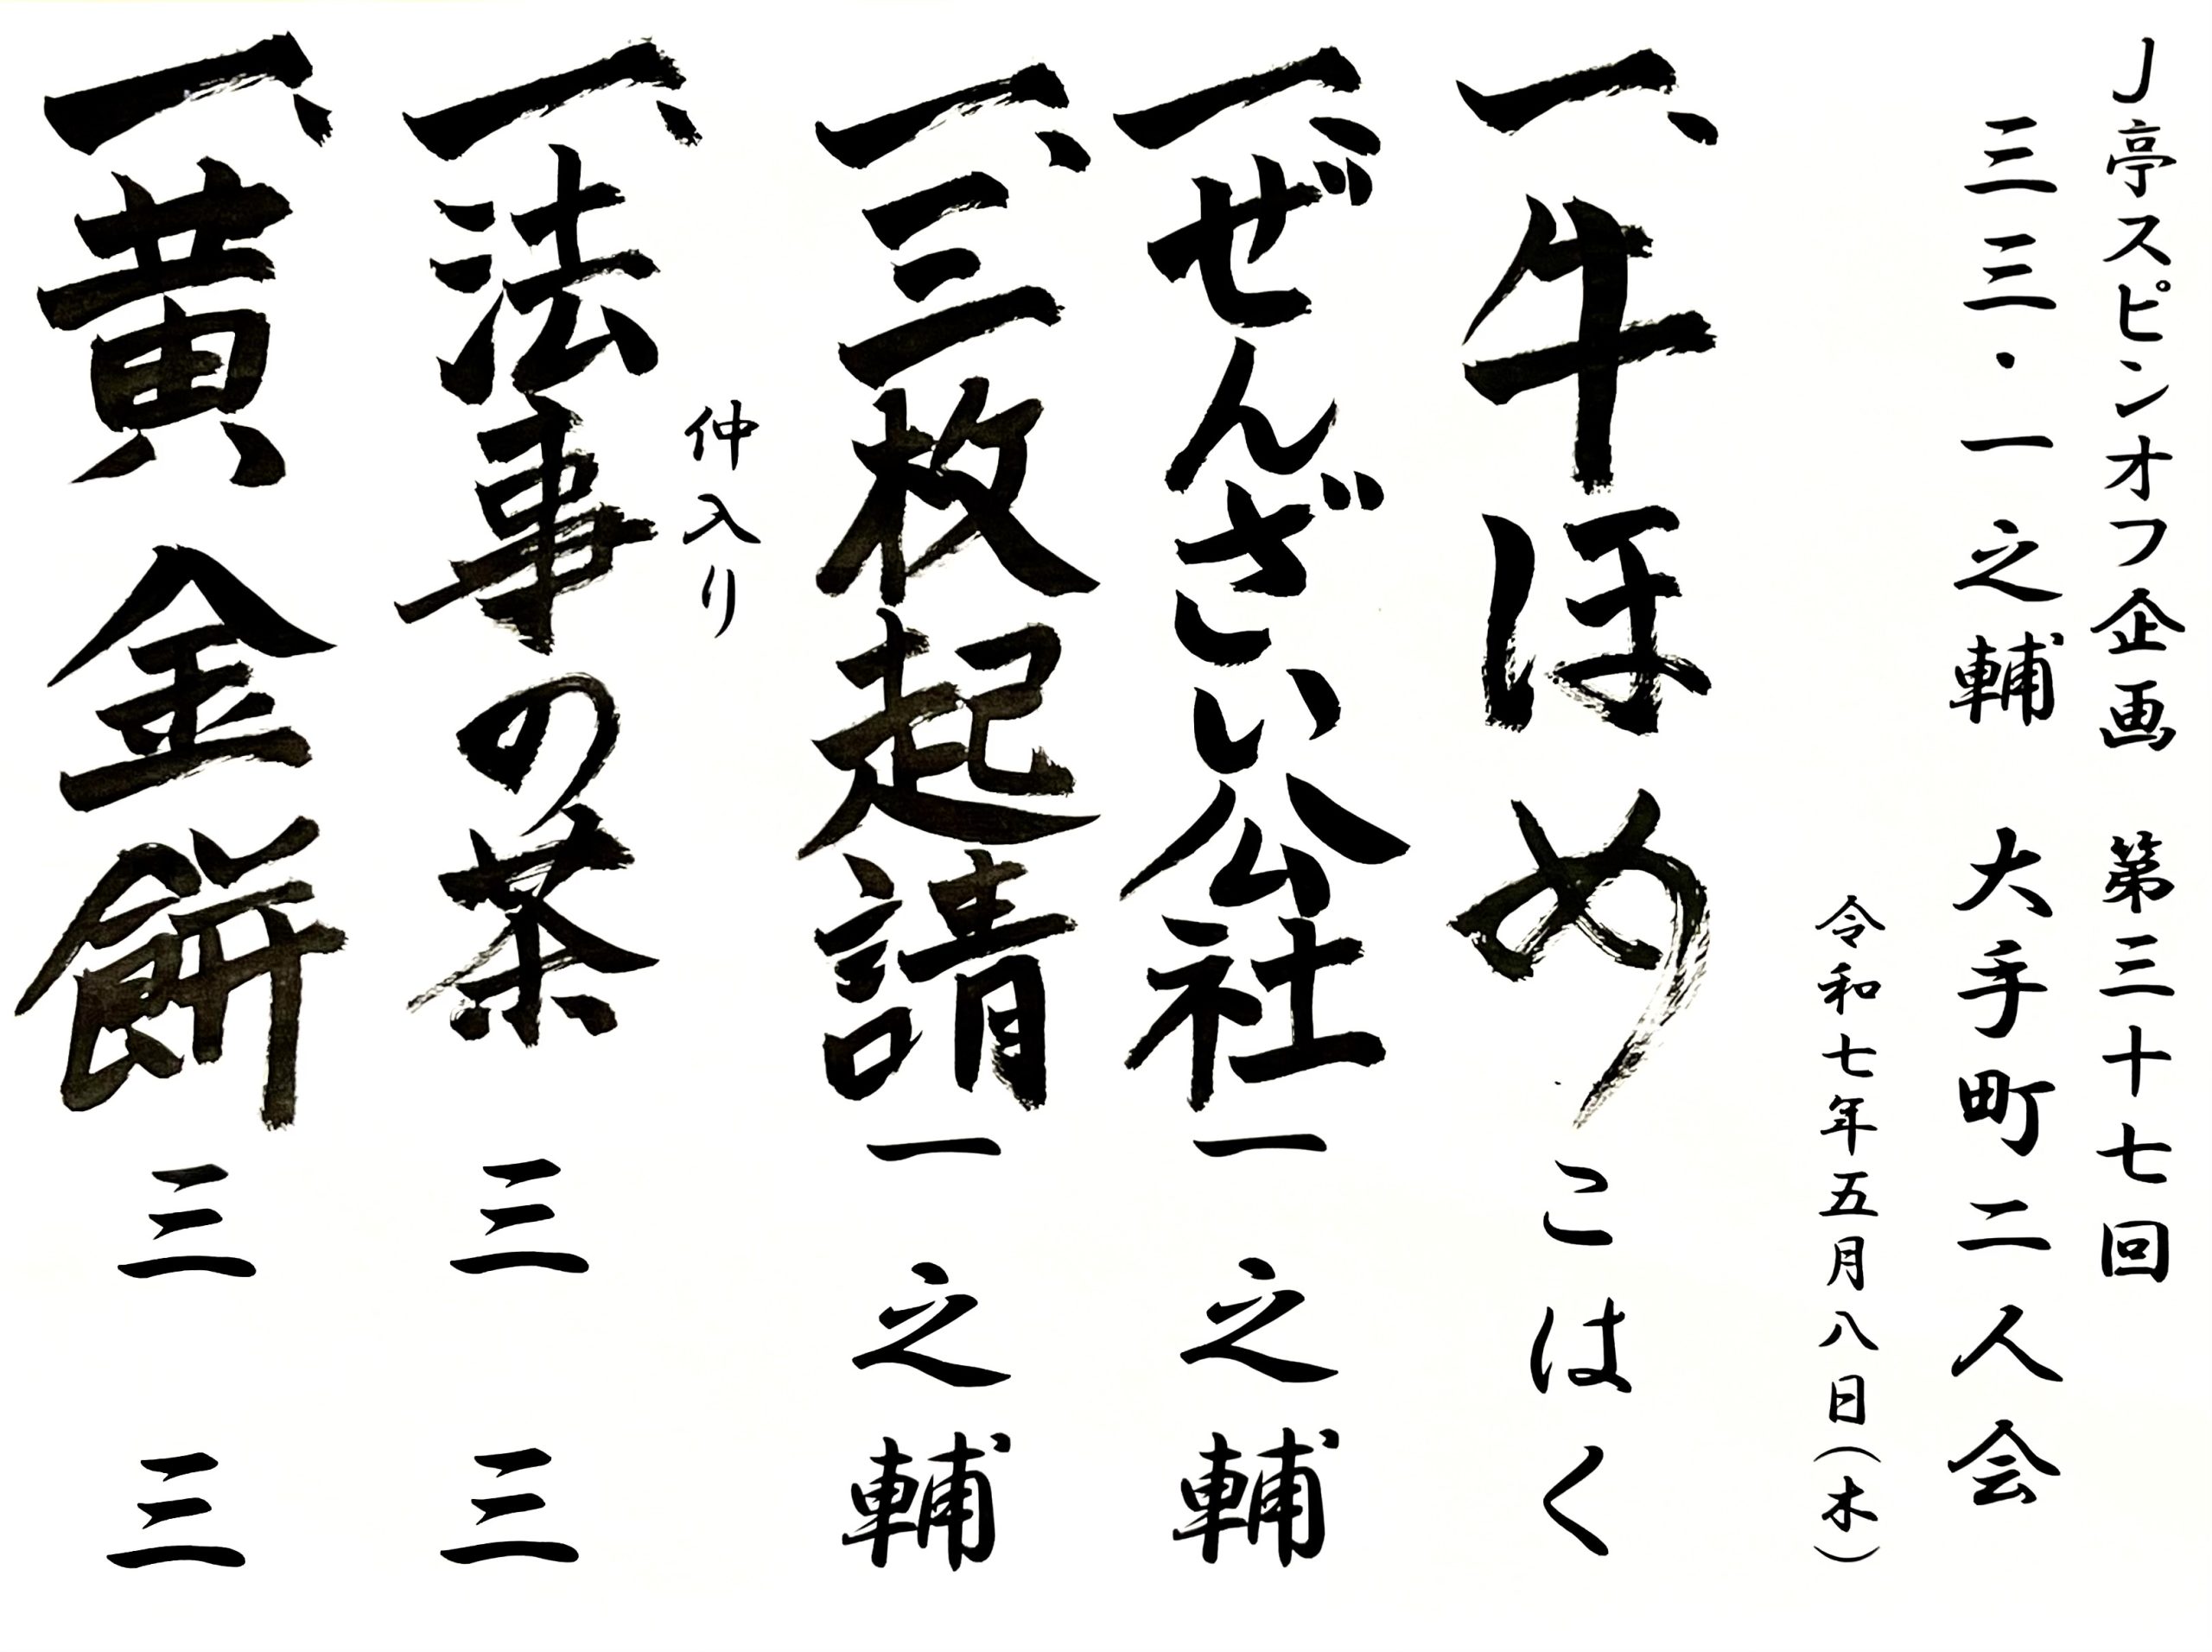 J亭スピンオフ企画 第三十七回
三三・一之輔 大手町二人会
令和七年五月八日(木)
一、牛ほめ こはく
一、ぜんざい公社 一之輔
一、三枚起請 一之輔
仲入り
一、法事の茶 三三
一、黄金餅 三三